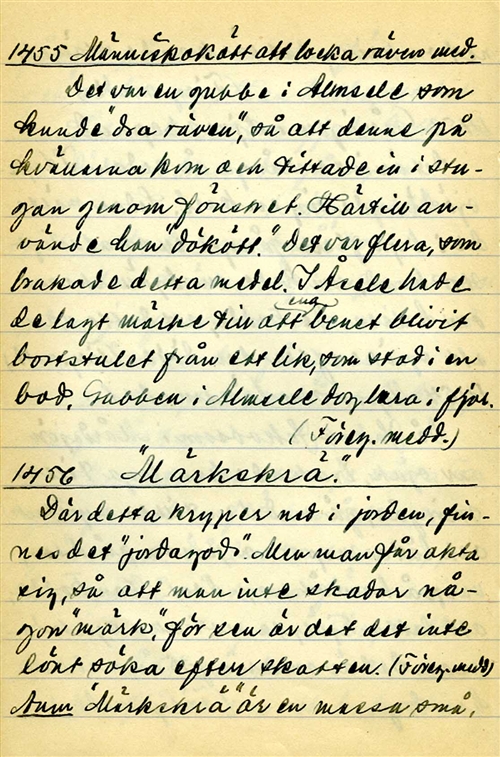 1455 Människokött att locka räven med.
Det var en gubbe i Almsele som
kunde "dra räven", så att denne på
kvällarna kom och tittade in i stu-
gan genom fönstret. Härtill an-
vände han "dökött." Det var flera, som
brukade detta medel. I Åsele hade
de lagt märke till att ena benet blivit
bortstulet från ett lik, som stod i en
bod. Gubben i Almsele dog bara i fjor.
(Föreg. medd.)
1456 "Märkskrä."
Där detta kryper ned i jorden, fin-
nes det "jordagods". Men man får akta
sig, så att man inte skadar nå-
gon "märk", för sen är det det inte
lönt söka efter skatten. (Föreg. medd)
Anm "Märkskrä" är en massa små,